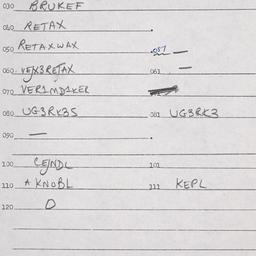 030 BRUKEF
040 RETAX
050 RETAXWAX 051 —
060 VEJX3RETAX 061 —
070 VER1MD1KER
080 UG3RK3S 081 UG3RK3
090 —
100 CEJNDL 101
110 A KNOBL 111 KEPL
120 O